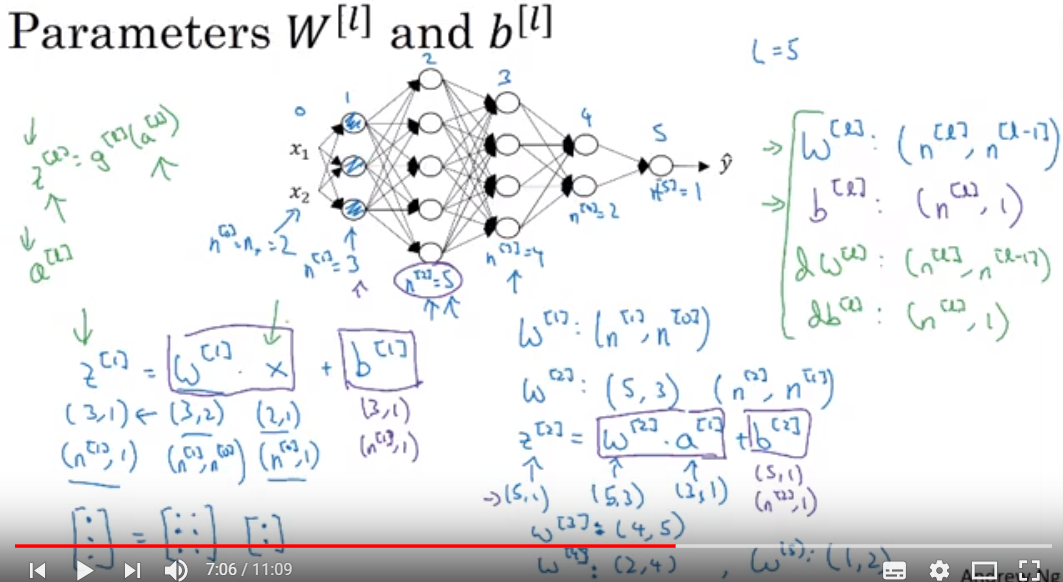 Parameters W^[l] and b^[l]
L = 5
0 1 2 3 4 5
x₁
x₂
ŷ
z^[l] = g^[l](a^[l])
a^[l]
n^[0] = nₓ = 2
n^[1] = 3
n^[2] = 5
n^[3] = 4
n^[4] = 2
n^[5] = 1
W^[l] : (n^[l], n^[l-1])
b^[l] : (n^[l], 1)
dW^[l] : (n^[l], n^[l-1])
db^[l] : (n^[l], 1)
z^[1] = W^[1] · x + b^[1]
(3,1) ← (3,2) (2,1) (3,1)
(n^[1], 1) (n^[1], n^[0]) (n^[0], 1) (n^[1], 1)
[:] = [: :] [:]
W^[1] : (n^[1], n^[0])
W^[2] : (5, 3) (n^[2], n^[1])
z^[2] = W^[2] · a^[1] + b^[2]
→ (5,1) (5,3) (3,1) (5,1)
(n^[2], 1)
W^[3] : (4, 5)
W^[4] : (2, 4) , W^[5] : (1, 2)
7:06 / 11:09
Andrew Ng